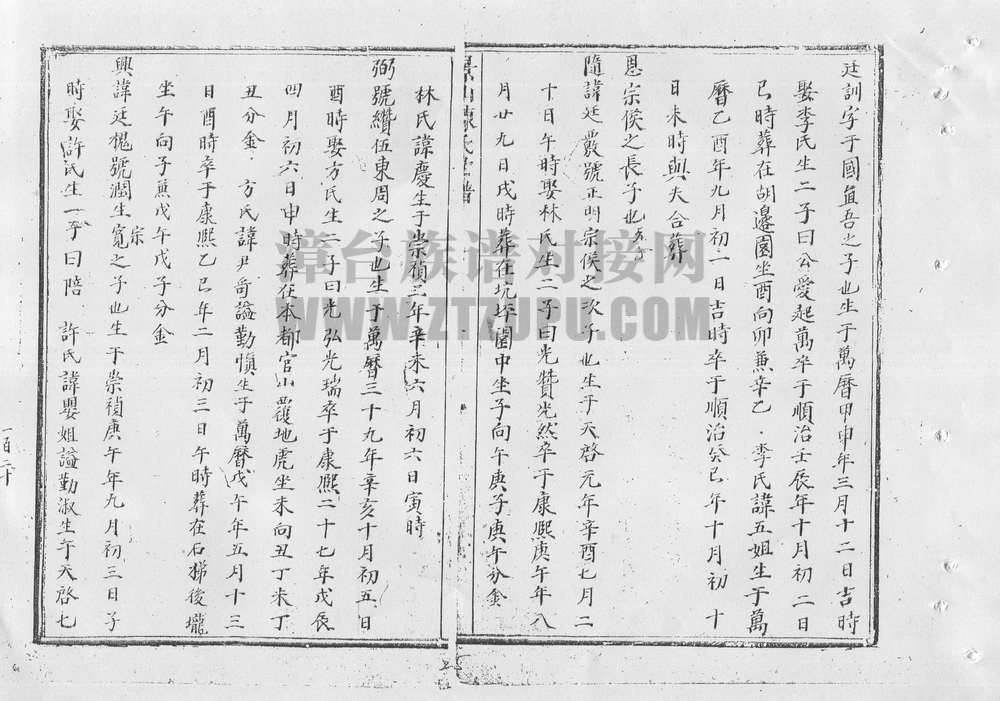 廷訓字于國直吾之子也生于萬曆甲申年三月十二日吉時
娶李氏生二子曰公愛起萬卒于順治壬辰年十月初二日
巳時葬在胡邊園坐酉向卯兼辛乙·李氏諱五姐生于萬
曆乙酉年九月初二日吉時卒于順治癸巳年十月初十
日未時與夫合葬
恩宗侯之長子也
隨諱廷嚴號正明宗侯之次子也生于天啓元年辛酉七月二
十日午時娶林氏生二子曰光贊光然卒于康熙庚午年八
月廿九日戌時葬在坑坪園中坐子向午庚子庚午分金
氏 譜
林氏諱慶生于崇禎三年辛未六月初六日寅時
弼號纘伍東周之子也生于萬曆三十九年辛亥十月初五日
酉時娶方氏生二子曰光弘光瑞卒于康熙二十七年戊辰
四月初六日申時葬在本都官山覆地虎坐未向丑丁未丁
丑分金·方氏諱尹謚勤慎生于萬曆戊午年五月十三
日酉時卒于康熙乙巳年二月初三日午時葬在石梯後壠
坐午向子兼戊午戊子分金
興諱廷槐號潤生宗寬之子也生于崇禎庚午年九月初三日子
時娶許氏生一子曰陪 許氏諱嬰姐謚勤淑生于天啓七
一百二十
漳台族谱对接网
WWW.ZTZUPU.COM